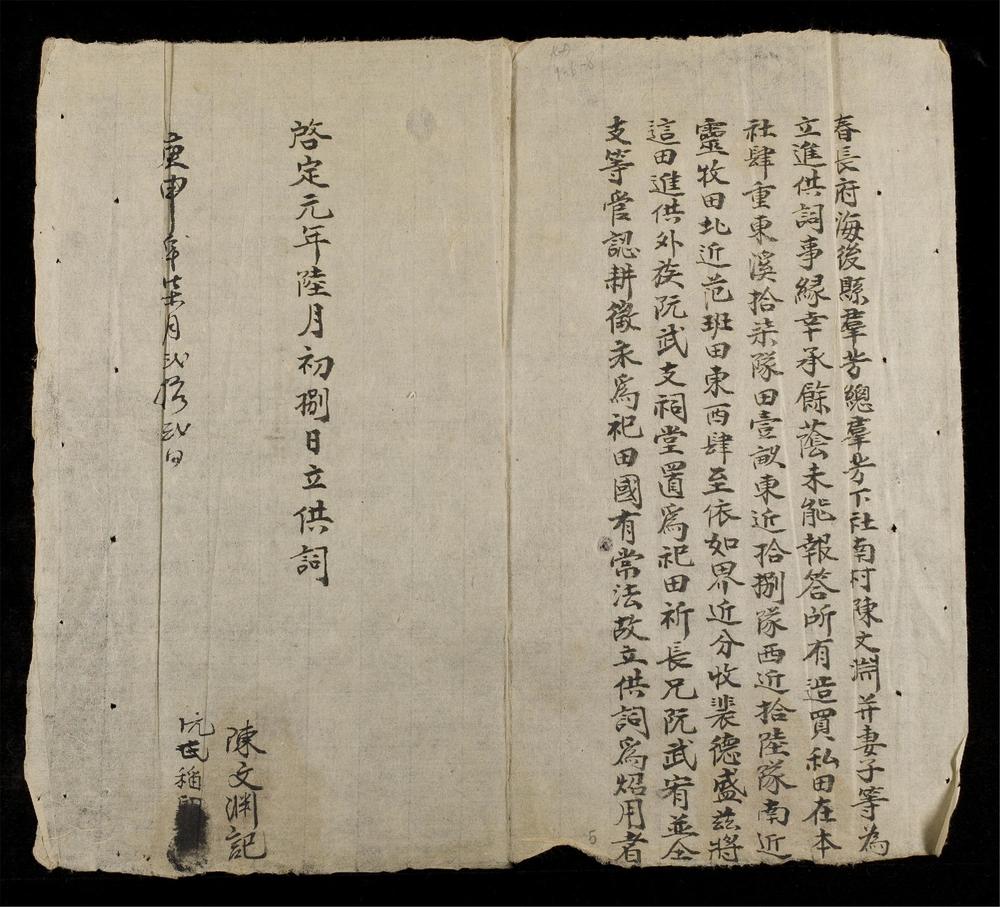 春長府海後縣羣芳總羣芳下社南村陳文淵并妻子等為
立進供詞事緣幸承餘蔭未能報答所有造買私田在本
社肆重東溪拾柒隊田壹畝東近拾捌隊西近拾陸隊南近
靈牧田北近范班田東西肆至依如界近分收裴德盛茲將
這田進供外族阮武支祠堂置爲祀田祈長兄阮武宥並仝
支等管認耕徵永爲祀田國有常法故立供詞爲炤用者
啓定元年陸月初捌日立供詞
陳文淵記
阮氏
庚申年柒月弍拾弍日
5